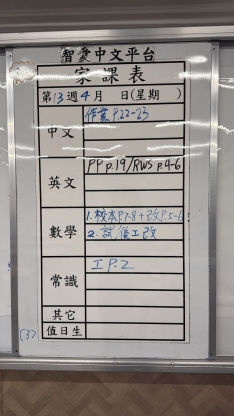 智愛中文平台
家課表
第13週4月 日(星期 )
中文 作業 P.22-23
英文 PP p.19/RWS p.4-6
數學 1.校本P.7-8+改P.5-6
2.試後工改
常識 工P.2
其它
值日生
(3)